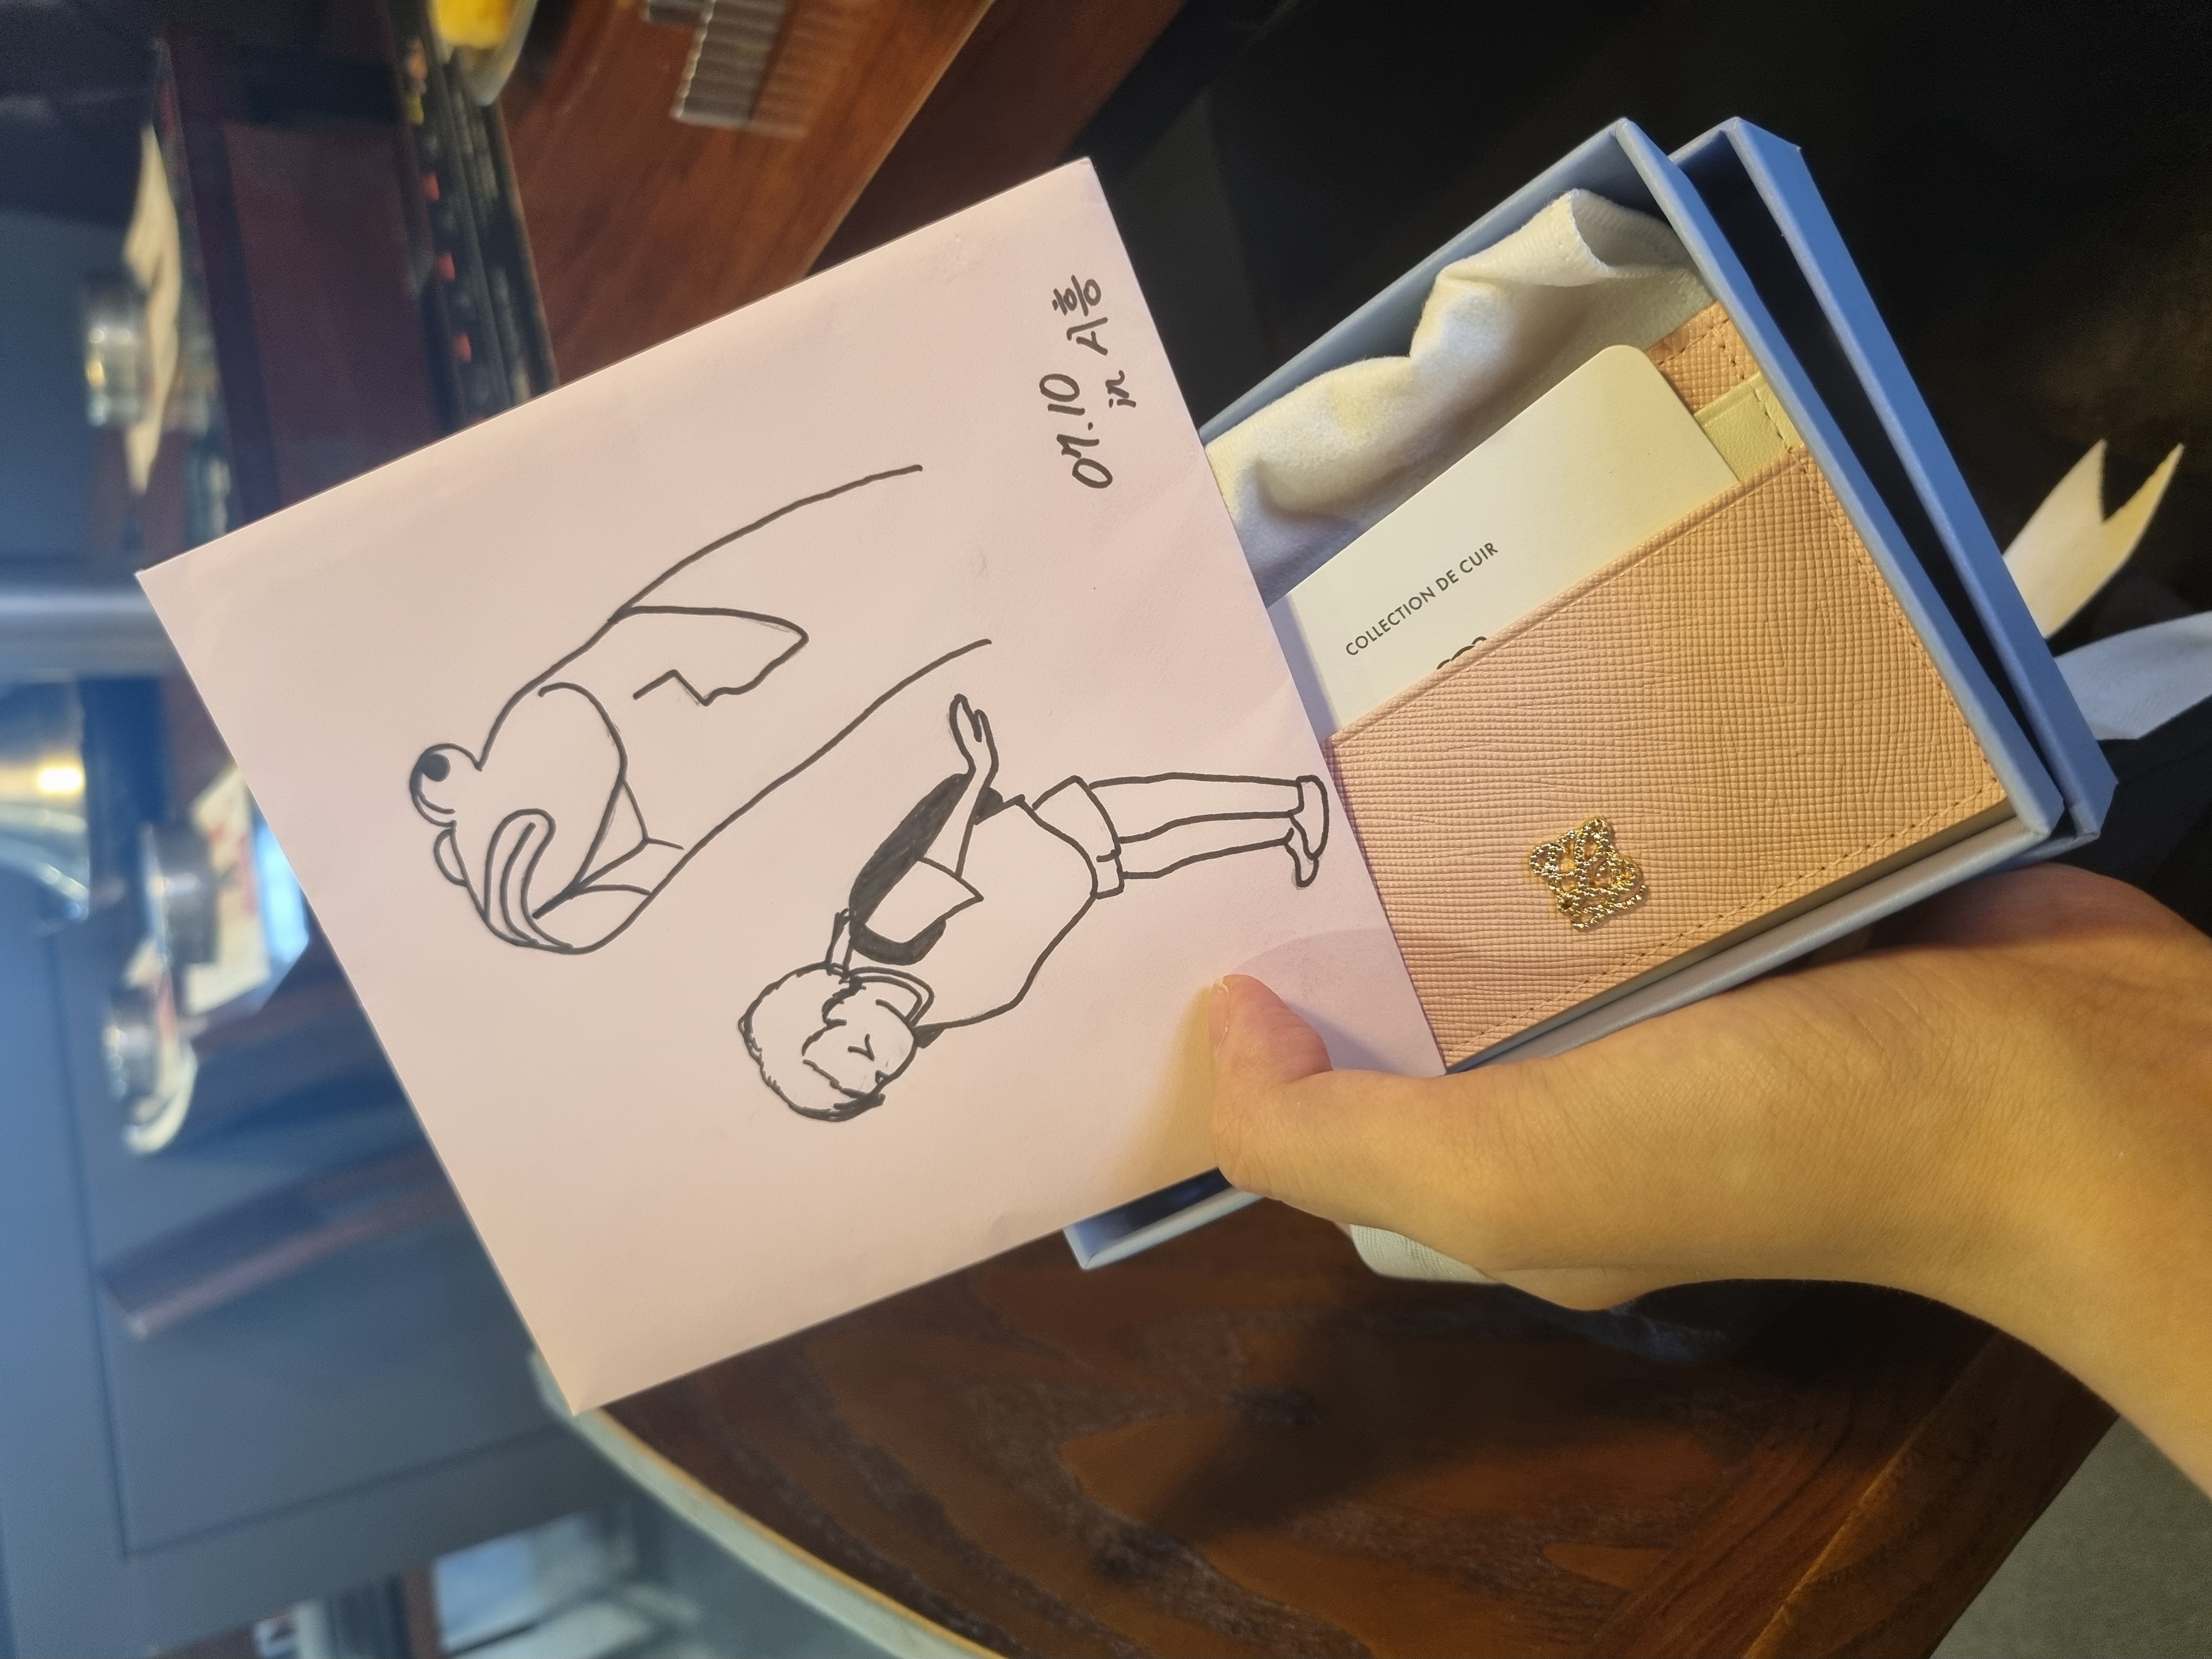 07.10
in 시흥
COLLECTION DE CUIR